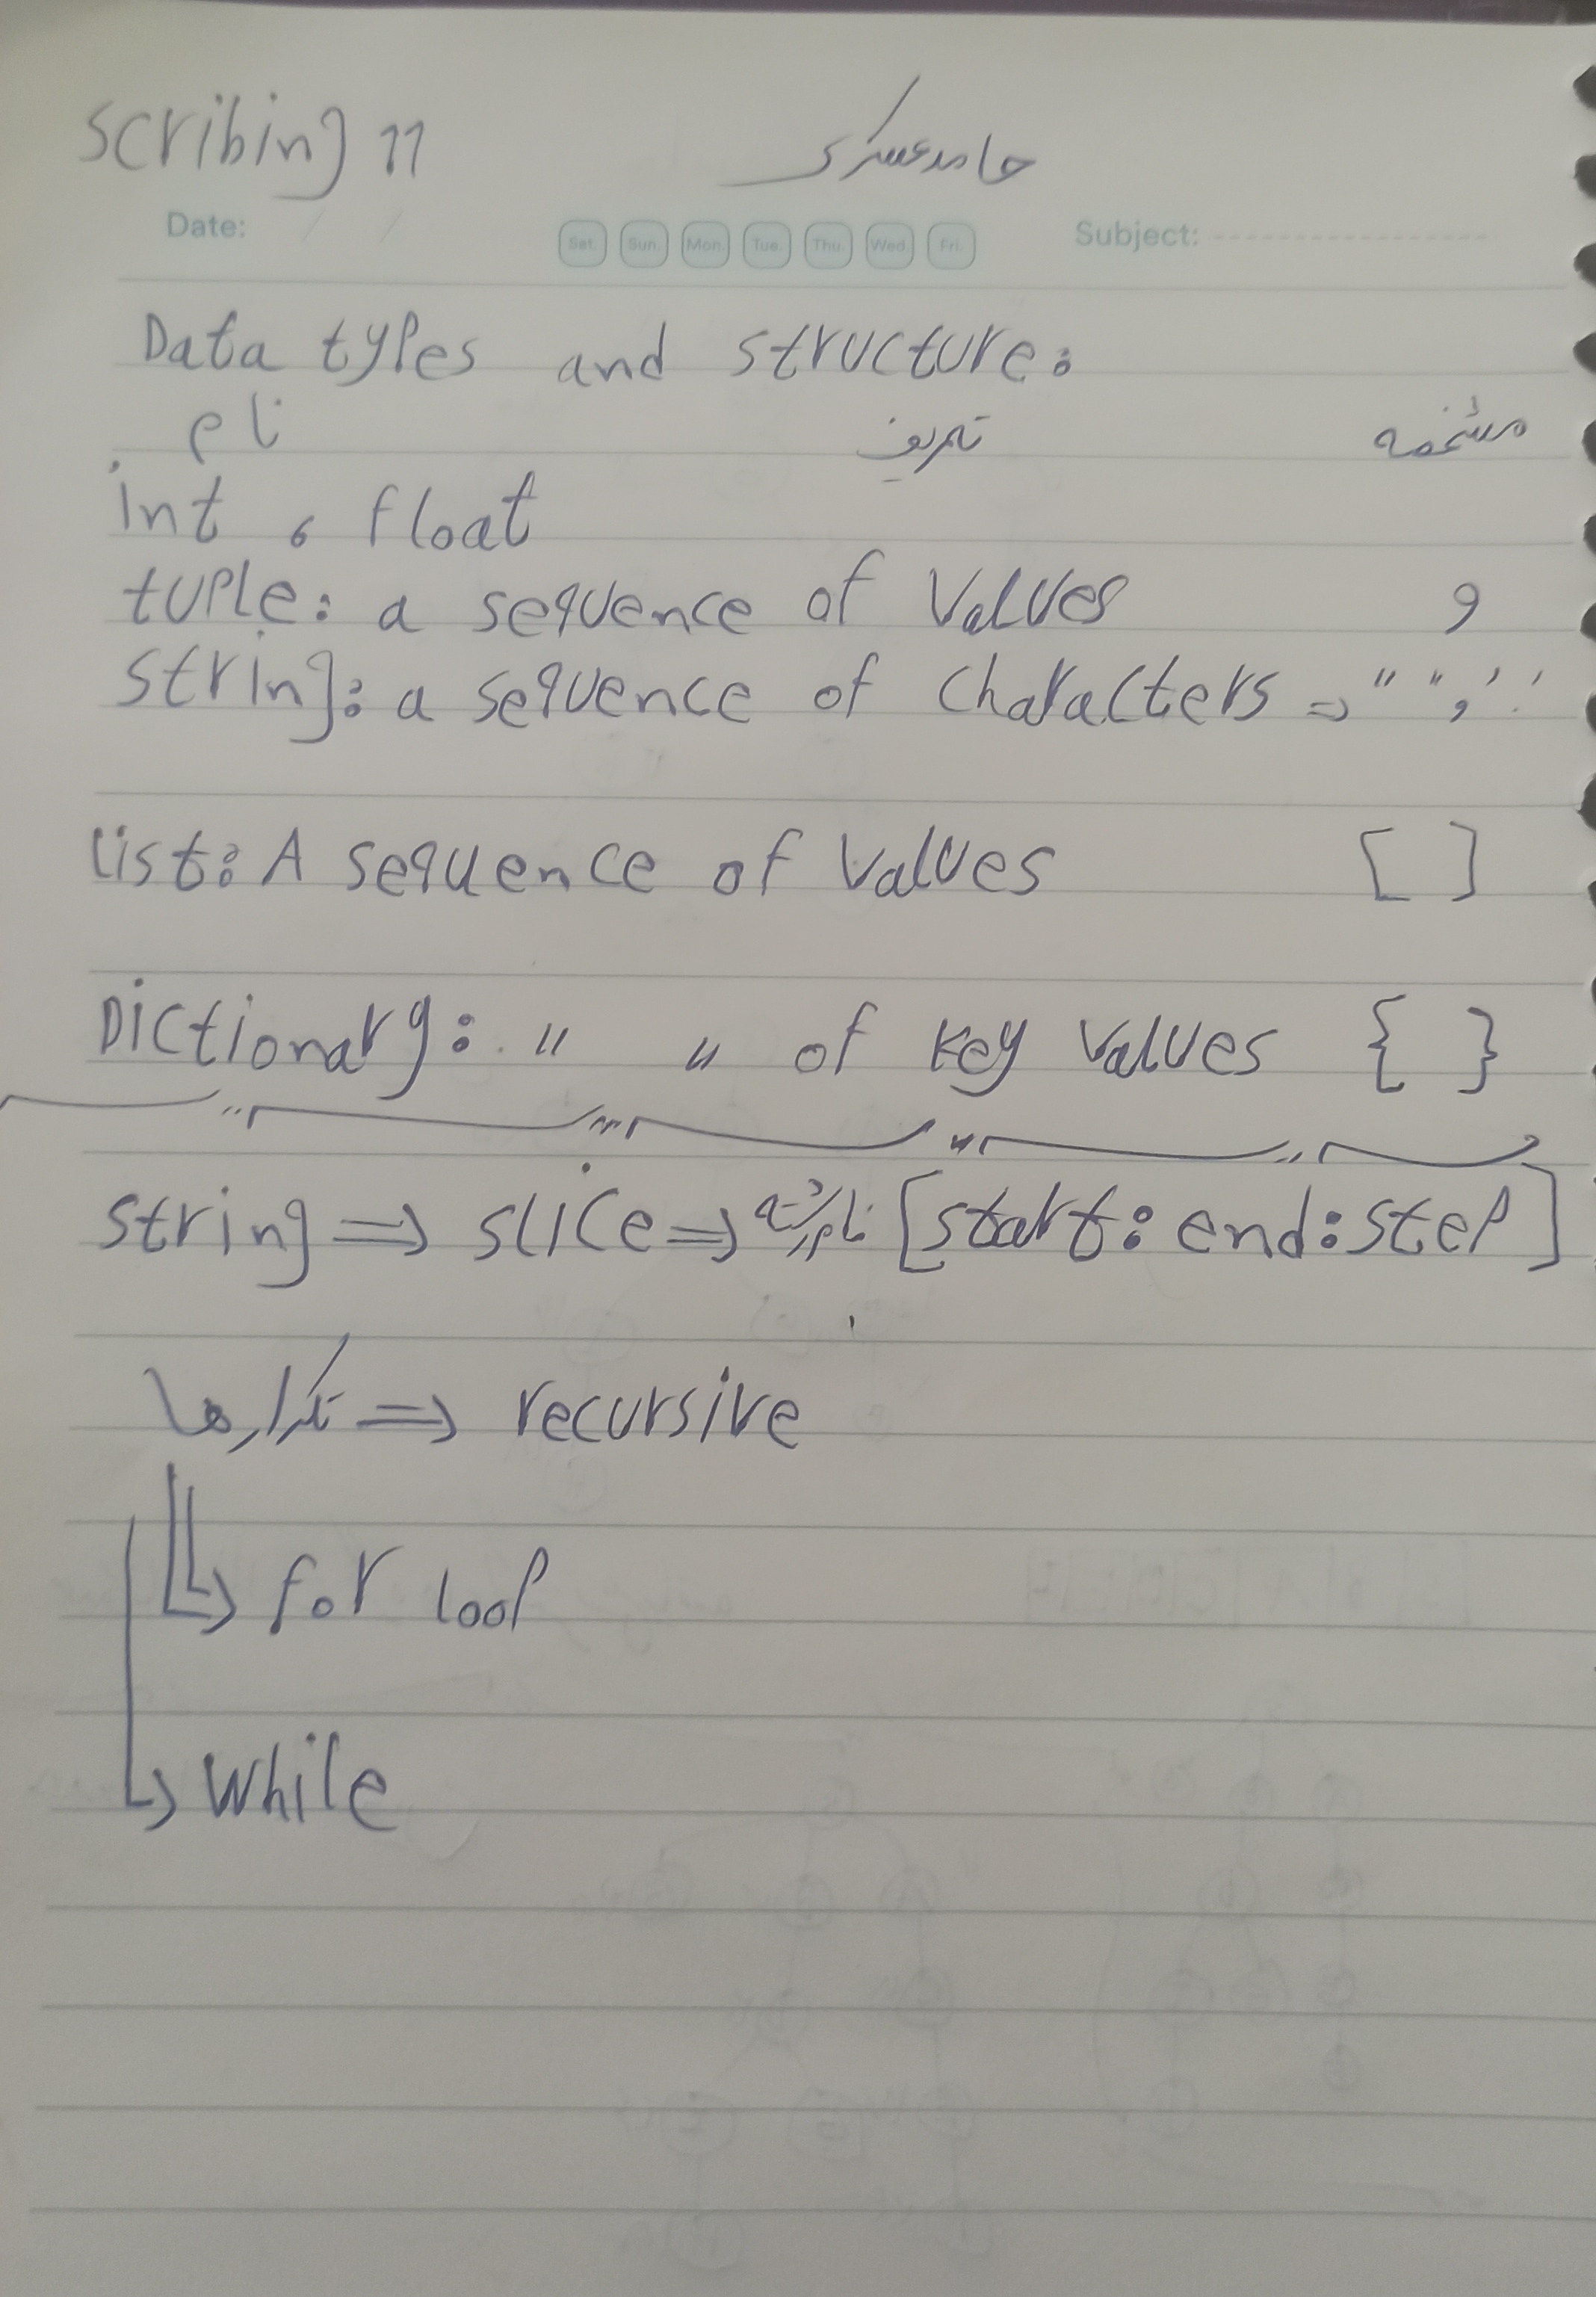 scribing 11 حامد عسکری
Date: / / Sat. Sun. Mon. Tue. Thu. Wed. Fri. Subject:
Data types and structure:
نام تعریف مشخصه
int , float
tuple: a sequence of values و
string: a sequence of characters => " " , ' '
list: A sequence of values [ ]
Dictionary: " " of key values { }
string => slice => نام رشته [start: end: step]
تکرارها => recursive
↳ for loop
↳ while